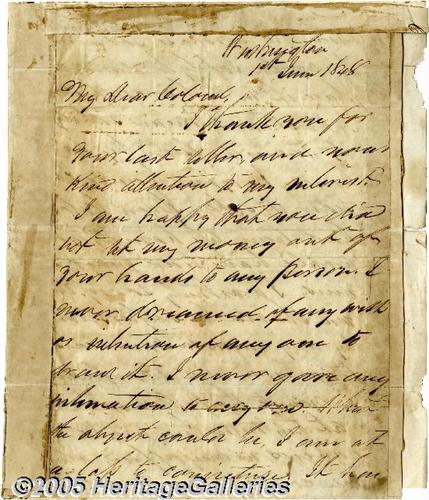 Washington
1st June 1848
My Dear Colonel,
I thank you for
your last letter, and your
kind attention to my interest.
I am happy that you did
not at my money out of
your hands to any person. I
never dreamed of any wish
or intention of any one to
draw it. I never gave any
intimation to any one. What
the object could be, I am at
a loss to conjecture. It has
©2005 HeritageGalleries